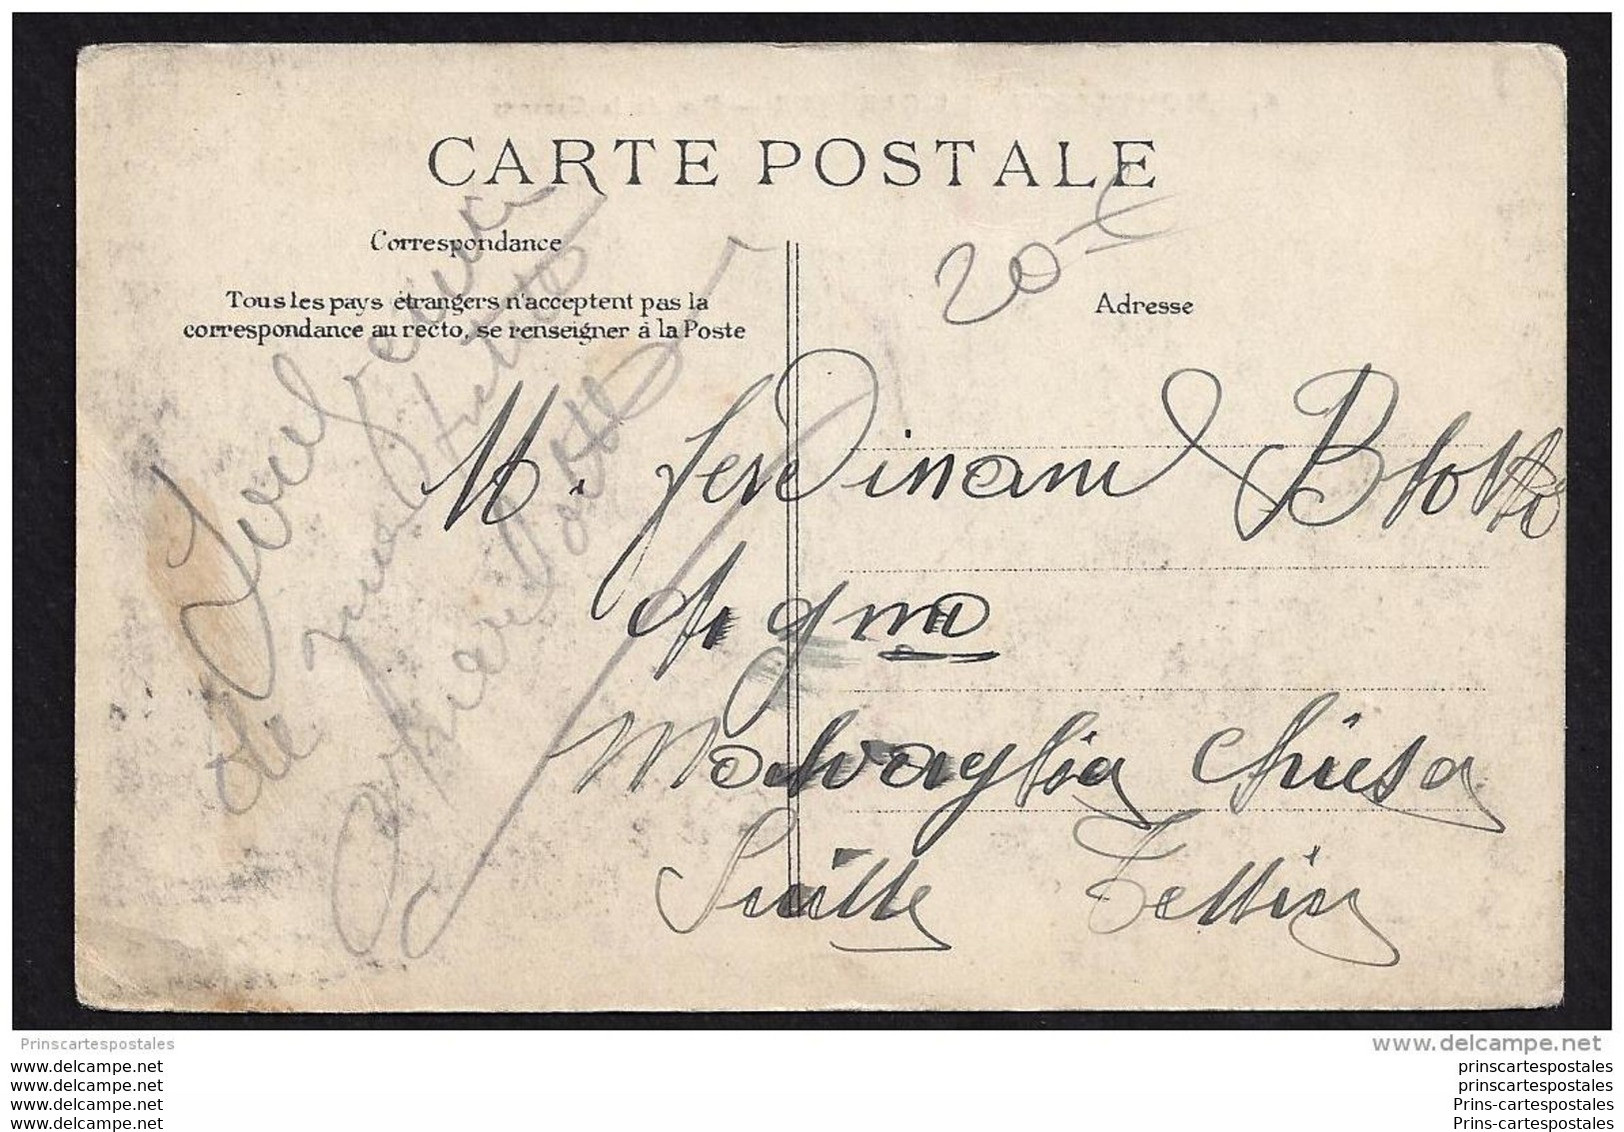 CARTE POSTALE
Correspondance
Tous les pays étrangers n'acceptent pas la
correspondance au recto, se renseigner à la Poste
Adresse
20-
Souvenir
de
M. Ferdinand Blotti
Malvaglia Chiesa
Suisse Tessin
Prinscartespostales
www.delcampe.net
www.delcampe.net
www.delcampe.net
www.delcampe.net
www.delcampe.net
prinscartespostales
prinscartespostales
Prins-cartespostales
Prins-cartespostales